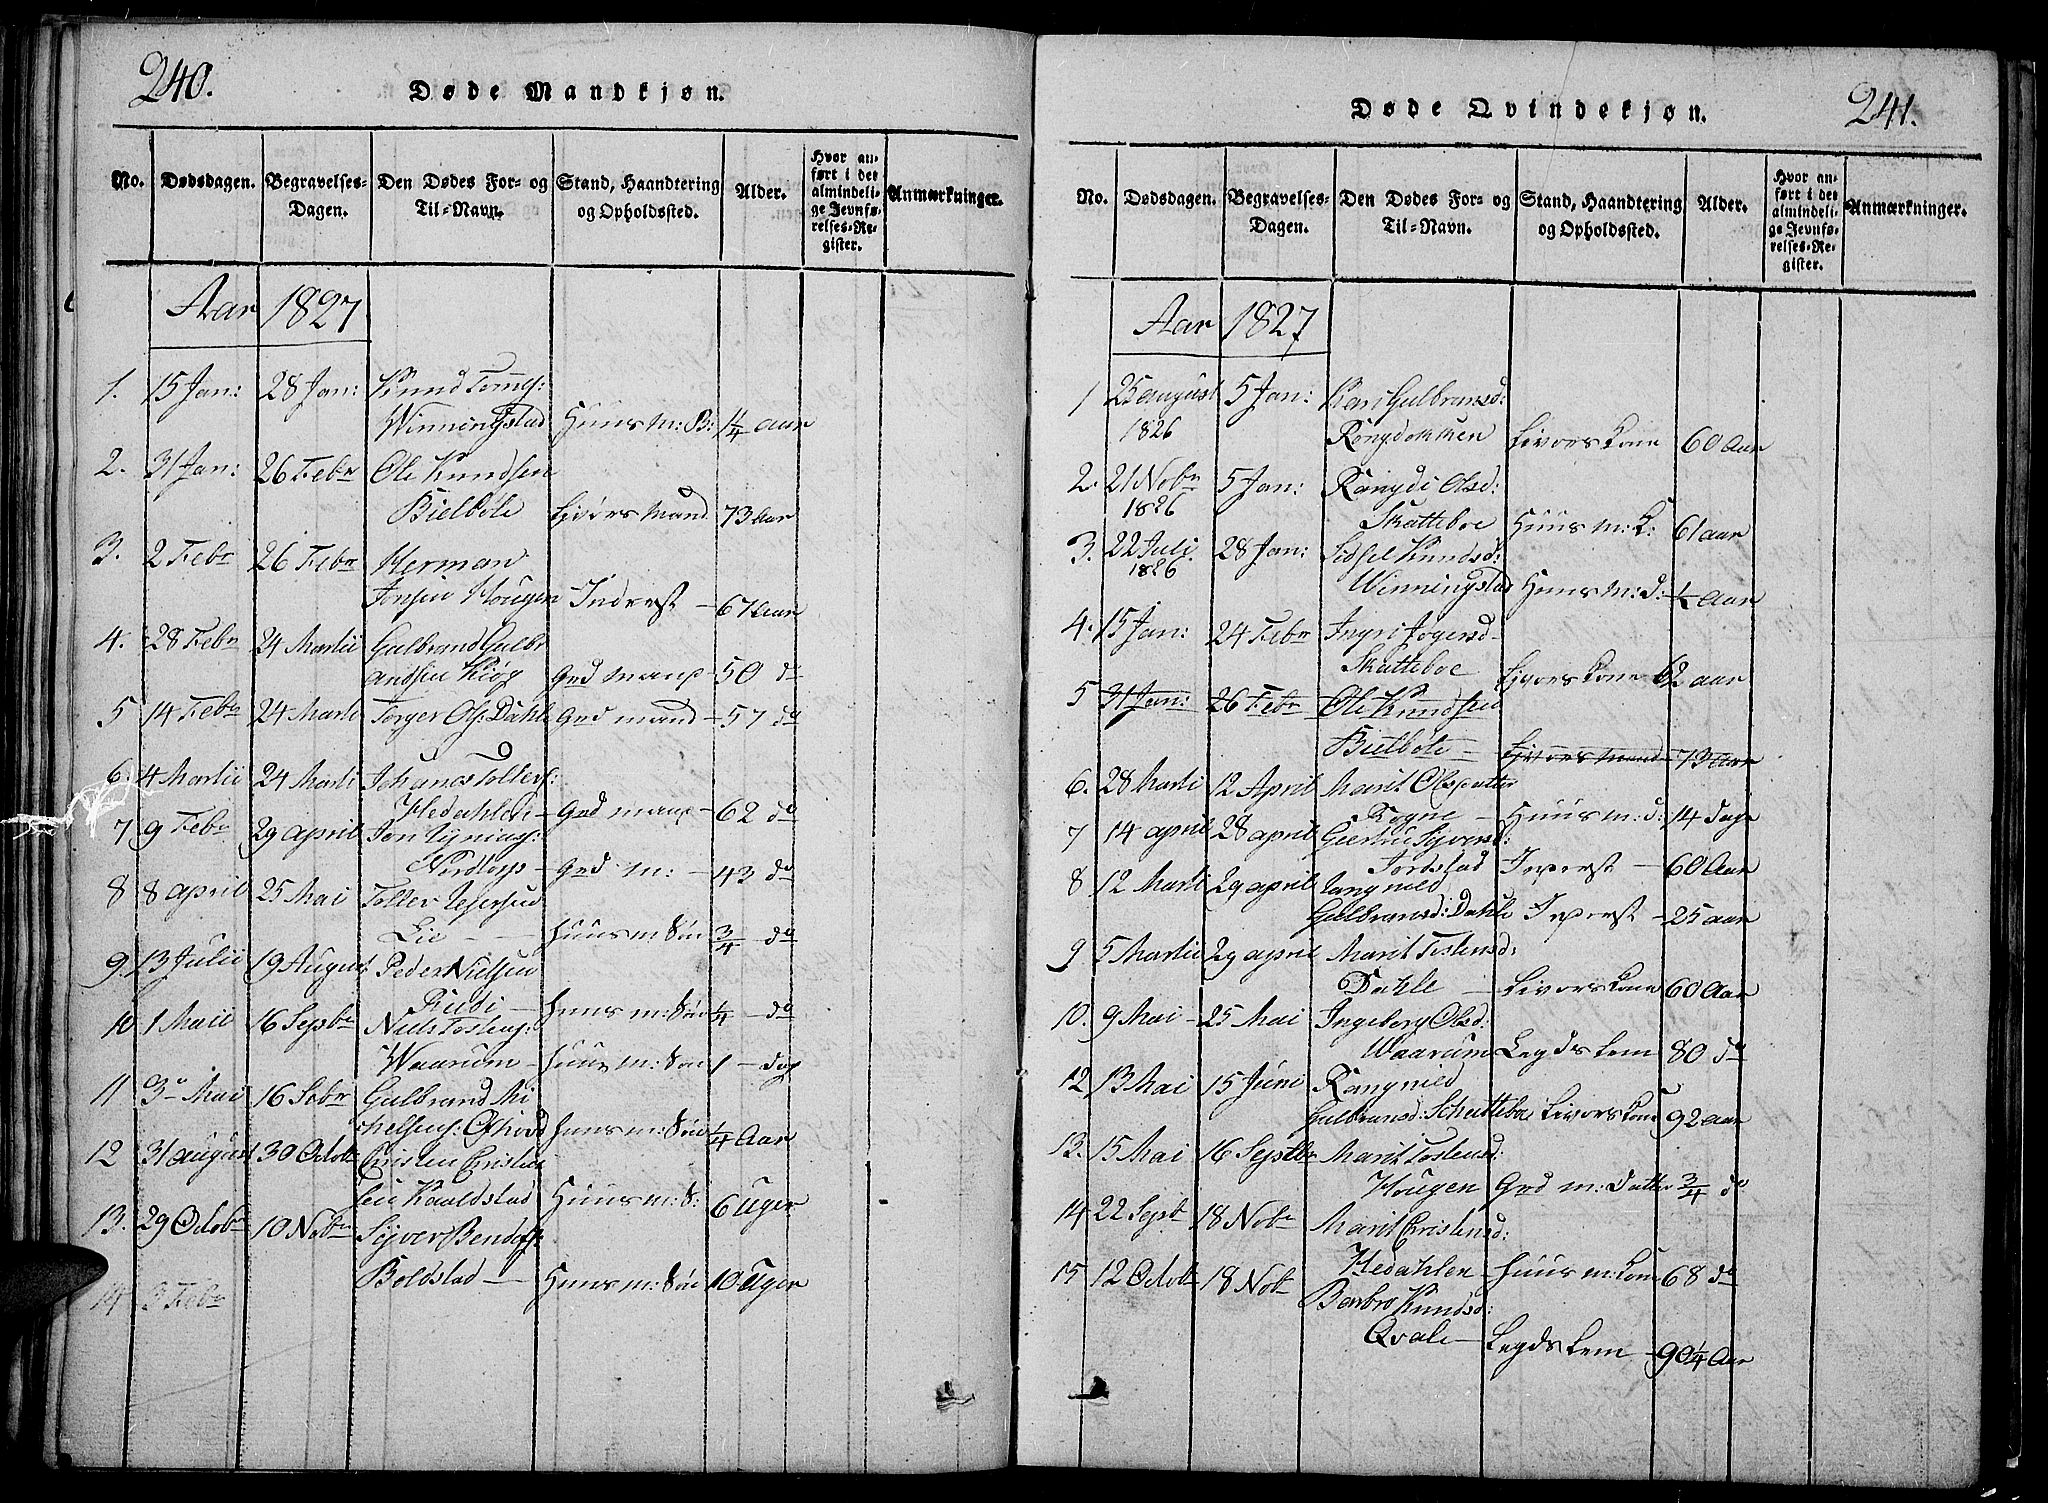 240.
Døde Mandkjøn.
No. Dødsdagen. Begravelses-Dagen. Den Dødes For- og Til-Navn. Stand, Haandtering og Opholdssted. Alder. Hvor anført i det almindelige Jevnførelses-Register. Anmærkninger.
Aar 1827
1. 15 Jan: 28 Jan: Knud
Winningstad Huusm: B: 1¼ aar
2. 31 Jan: 26 Febr Ole Knudsen
Bielbøle mand 73 aar
3. 2 Febr 26 Febr Herman
Jonsen Hougen Inderst - 67 aar
4. 28 Febr 24 Martii Gulbrand Gulbr
andsen Kiøg Grd mand - 50 do
5 14 Febr 24 Marti Torger Ols: Dahle Grd mand - 57 do
6. 4 Martii 24 Marti Johanes Tollefs:
Hedahlen - Grd mand - 62 do
7 9 Febr 29 april Jon
Nordtorp - Grd m: - 43 do
8 8 april 25 Mai Tollev
Lie - - Huusm: Søn ¾ do
9 13 Julii 19 August Peder Nielsen
Rudi - Huusm: Søn ¼ - do
10 1 Maii 16 Sepbr Niels Tostens:
Waarum - Huusm: Søn 1 - dag
11 3 Mai 16 Sebr Gulbrand Mi
chelsens: Huusm: Søn ¼ Aar
12 31 august 30 Octobr Cristen Cristen
sen Kauldstad Huusm: S: 6 Uger
13. 29 Octobr 10 Nobr Syver Bendts:
Boldstad - Huusm: Søn 10 Uger
14 3 Febr
241.
Døde Qvindekjøn.
No. Dødsdagen. Begravelses-Dagen. Den Dødes For- og Til-Navn. Stand, Haandtering og Opholdssted. Alder. Hvor anført i det almindelige Jevnførelses-Register. Anmærkninger.
Aar 1827
1 25 august 5 Jan: Kari Gulbransd:
1826 Kone 60 Aar
2. 21 Nobr 5 Jan: Rangdi Olsd:
1826 Skatteboe Huusm: K: 61 aar
3. 22 Juli 28 Jan: Sidsel Knudsd:
1826 Winningstad Huusm: d: aar
4. 15 Jan: 24 Febr Ingri
Skatteboe Kone 62 aar
5 31 Jan: 26 Febr Ole Knudsen
Bielbøle - mand - 73 aar
6. 28 Marti 12 April Marit Olsdatter
Rogne - Huusm: d: 14 dage
7 14 april 28 april Giertru Syversd:
Jordstad Inderst - 60 Aar
8 12 Marti 29 april Rangnild
Gulbransd: Dahle Inderst - 25 aar
9 5 Martii 29 april Marit Tostensd:
Dahle - Kone 60 Aar
10. 9 Mai - 25 Mai Ingeborg Olsd:
Waarum Legdslem 80 do
12 13 Mai 15 Juni Rangnild
Gulbransd: Schatteboe Kone 92 aar
13. 15 Mai 16 Septbr Marit Tostensd:
Hougen Grd m: Datter ¾ do
14 22 Sept 18 Nobr Marit Cristensd:
Hedahlen - Huusm: Kone 68 do
15 12 Octobr 18 Nobr Barbro Knudsd:
Qvale - Legdslem - 90¼ Aar